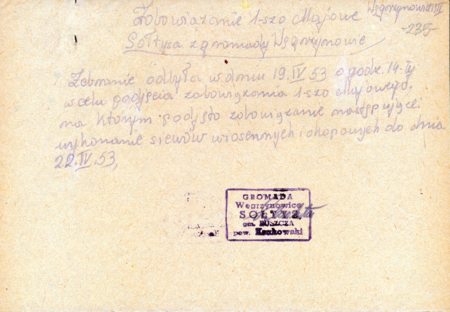 Zobowiązanie 1-szo Majowe
-235-
Sołtysa z gromady Węgrzynowie
Zebranie odbyła w dniu 19.IV 53 o godz. 14.
w celu podjęcia zobowiązania 1-szo Majowego,
na którym podjęto zobowiązanie następujące:
wykonanie siewów wiosennych i okopowych do dnia
22.IV 53,
GROMADA
Węgrzynowice
SOŁTYS
gm. RUSZCZA
pow. Krakowski